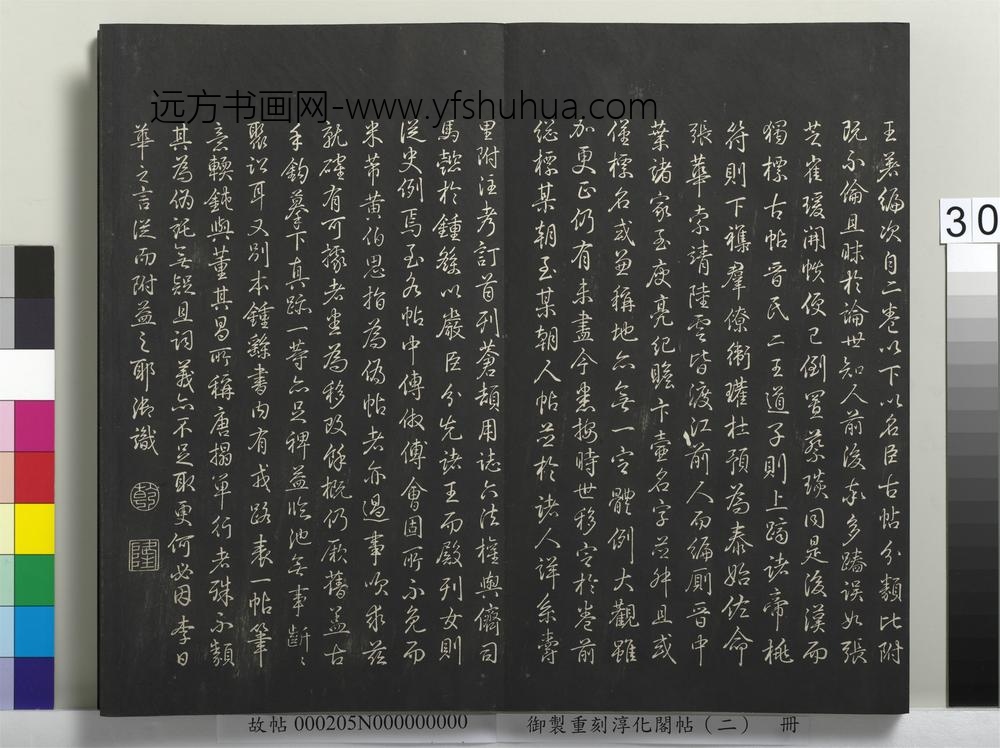 远方书画网-www.yfshuhua.com
王著編次自二卷以下以名臣古帖分類比附
既不倫且昧於論世知人前後亦多蹐誤如張
芝崔瑗開帙便已倒置蔡琰同是後漢而
獨標古帖晉民二王道子則上躋諸帝桃
符則下襍羣僚衛瓘杜預為泰始佐命
張華索靖陸雲皆渡江前人而編厠晉中
葉諸家至庾亮紀瞻卞壼名字並舛且或
僅標名或兼稱地亦無一定體例大觀雖
加更正仍有未盡今悉按時世移定於卷前
總標某朝至某朝人帖並於諸人詳系爵
里附注考訂首列蒼頡用誌六法權輿儕司
馬懿於鍾繇以嚴臣分先諸王而殿列女則
從史例焉至各帖中傳倣傅會固所不免而
米芾黃伯思指為偽帖者亦過事吹求茲
就確有可據者悉為移改餘概仍厥舊蓋古
手鉤摹下真跡一等亦足裨益臨池無事齗〻
聚訟耳又別本鍾繇書內有戎路表一帖筆
意輭鈍與董其昌所稱唐搨單行者殊不類
其為偽託無疑且詞義亦不足取更何必因李日
華之言從而附益之耶御識
乾
隆
30
故帖 000205N000000000 御製重刻淳化閣帖（二） 冊